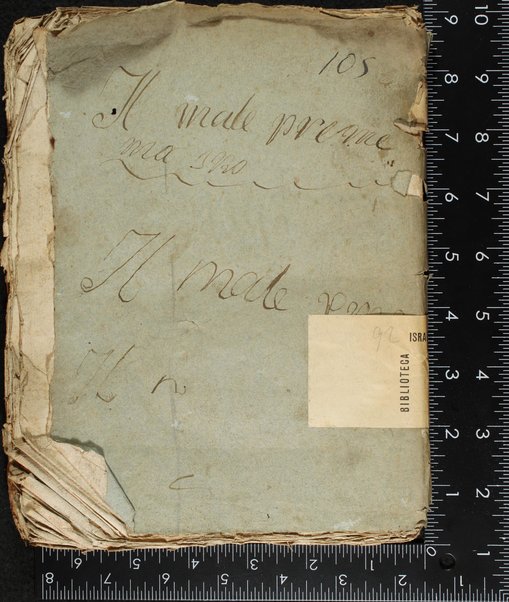 105
Il male preme
ma
Il male
Il
92
ISRA
BIBLIOTECA
10
9
8
7
6
5
4
3
2
1
9
8
7
6
5
4
3
2
1
0
8
7
6
5
4
3
2
1